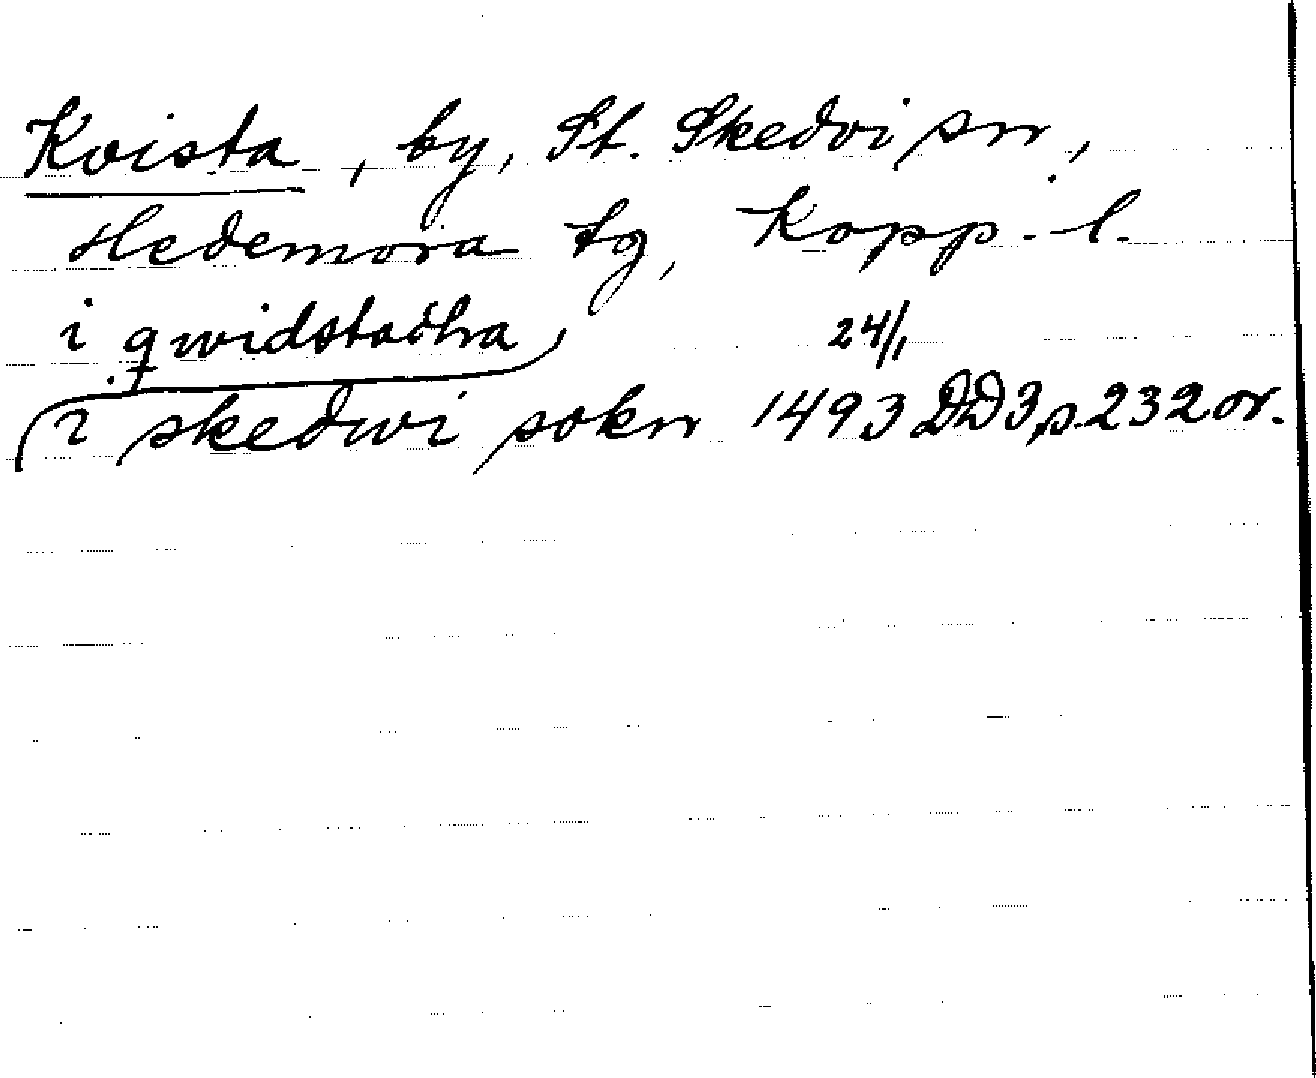 Kvista, by, St. Skedvi sn,
Hedemora tg, Kopp. l.
i qwidstadhra 24/1
i skedwi sokn 1493 DD3, s. 232 or.